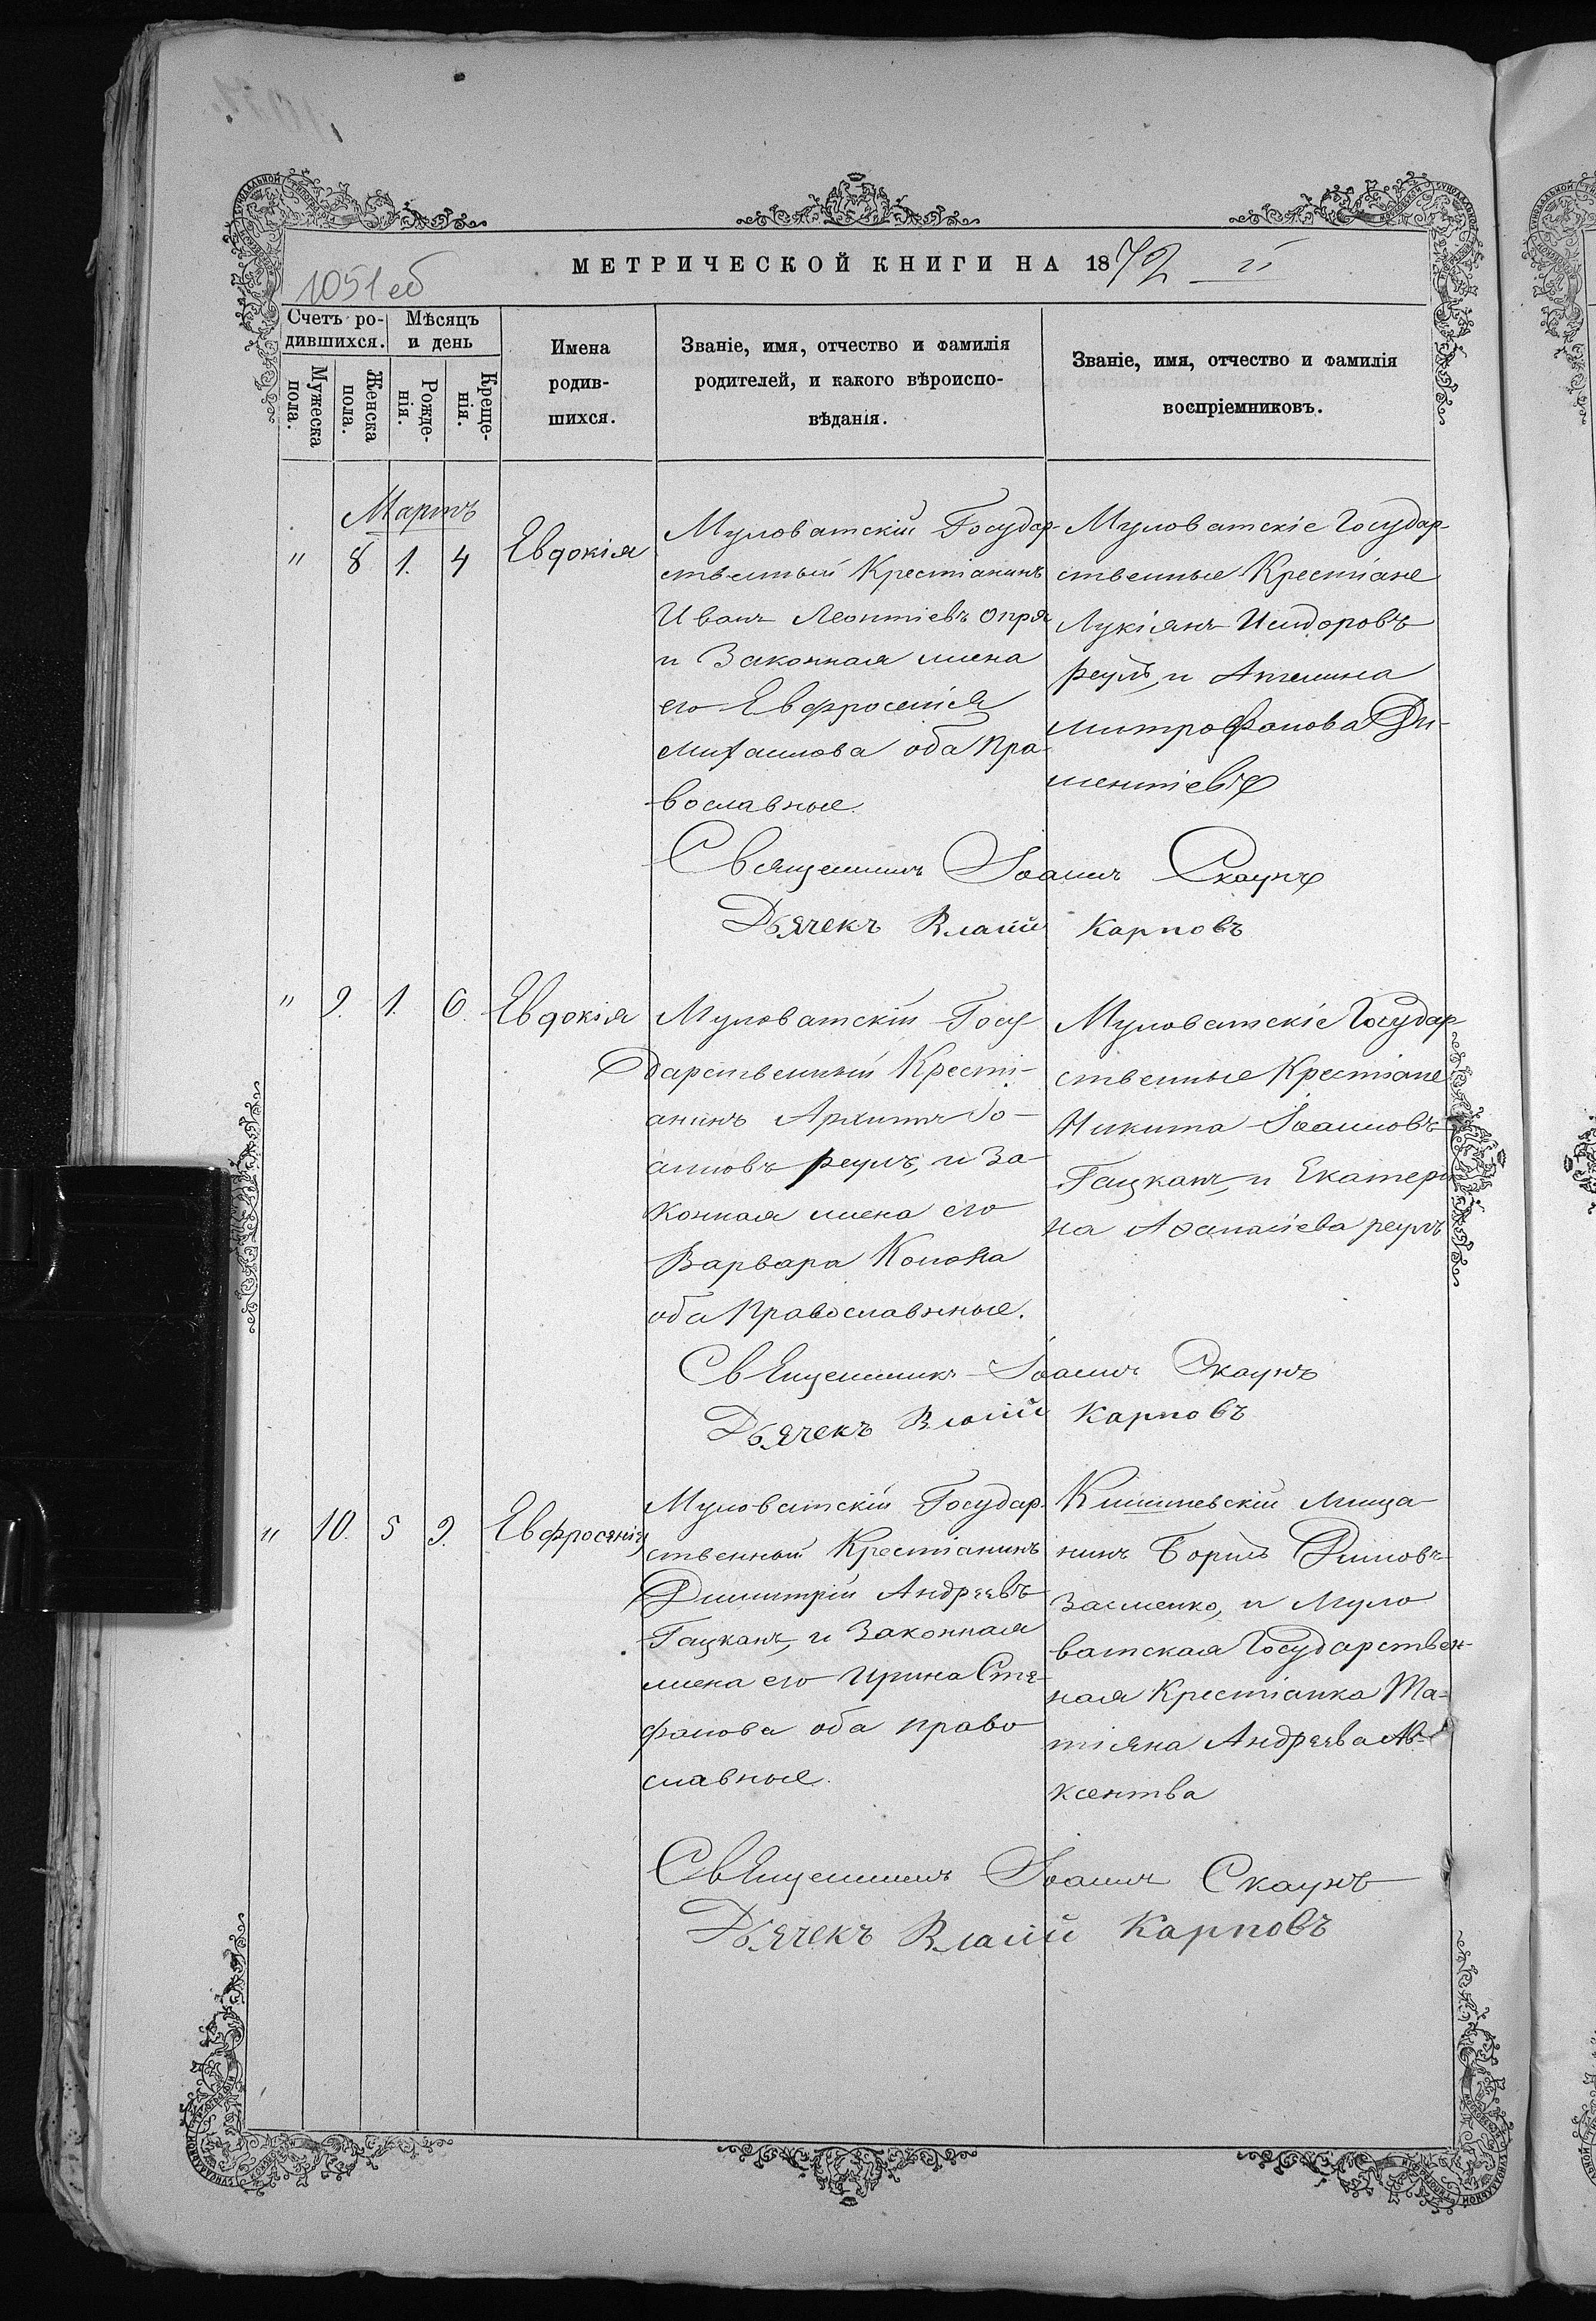 МЕТРИЧЕСКОЙ КНИГИ НА 1872
1051 об
Счетъ ро-
дившихся.
Мѣсяцъ
и день
Мужеска
пола.
Женска
пола.
Рожде-
нія.
Креще-
нія.
Имена
родив-
шихся.
Званіе, имя, отчество и фамилія
родителей, и какого вѣроиспо-
вѣданія.
Званіе, имя, отчество и фамилія
воспріемниковъ.
Мартъ
" 8 1. 4 Евдокія
Муловатскій Государ-
ственный Крестіанинъ
Иванъ Леонтіевъ Опря
и Законная жена
его Евфросинія
Михаилова оба Пра-
вославные.
Муловатскіе Государ-
ственные Крестіане
Лукіянъ Исидоровъ
реулъ, и Ангелина
митрофанова Ди-
ментіевъ
Священникъ Іоаннъ Скаунъ
Дьячекъ Власій Карповъ
" 9. 1. 6. Евдокія
Муловатскій Госу-
дарственный Кресті-
анинъ Архипъ Іо-
анновъ реулъ, и За-
конная жена его
Варвара Конова
оба Православнные.
Муловатскіе Государ-
ственные Крестіане
Никита Іоанновъ
Гацканъ, и Екатери
на Аѳанасіева реулъ
Священникъ Іоаннъ Скаунъ
Дьячекъ Власій Карповъ
" 10. 5 9. Евфросинія
Муловатскій Государ-
ственный Крестіанинъ
Димитрій Андреевъ
Гацканъ, и Законная
жена его Ирина Сте-
фанова оба право
славные.
Кишиневскій Мища-
нинъ Борисъ
и Муло
ватская Государствен-
ная Крестіанка Та-
тіяна Андреева Ав-
ксентва
Священникъ Іоаннъ Скаунъ
Дьячекъ Власій Карповъ